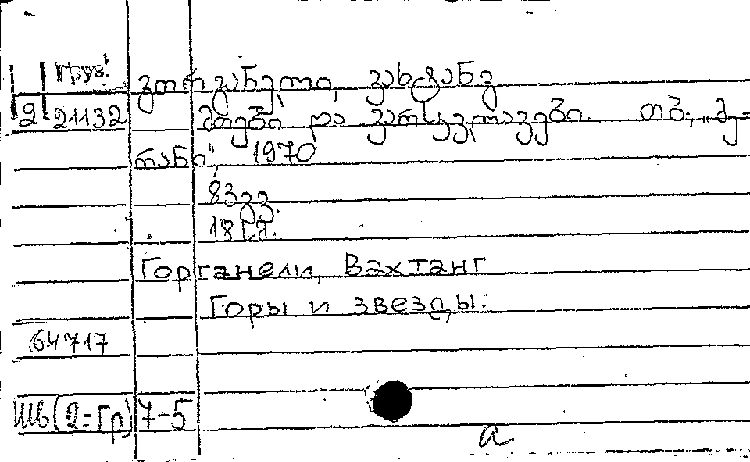 Груз.
2 21132
გორგანელი, ვახტანგ
მთები და ვარსკვლავები. თბ., „მე-
რანი“, 1970
83 გვ.
18 კ.
Горганели, Вахтанг
Горы и звезды.
64717
Шв(2=Гр)7-5
a